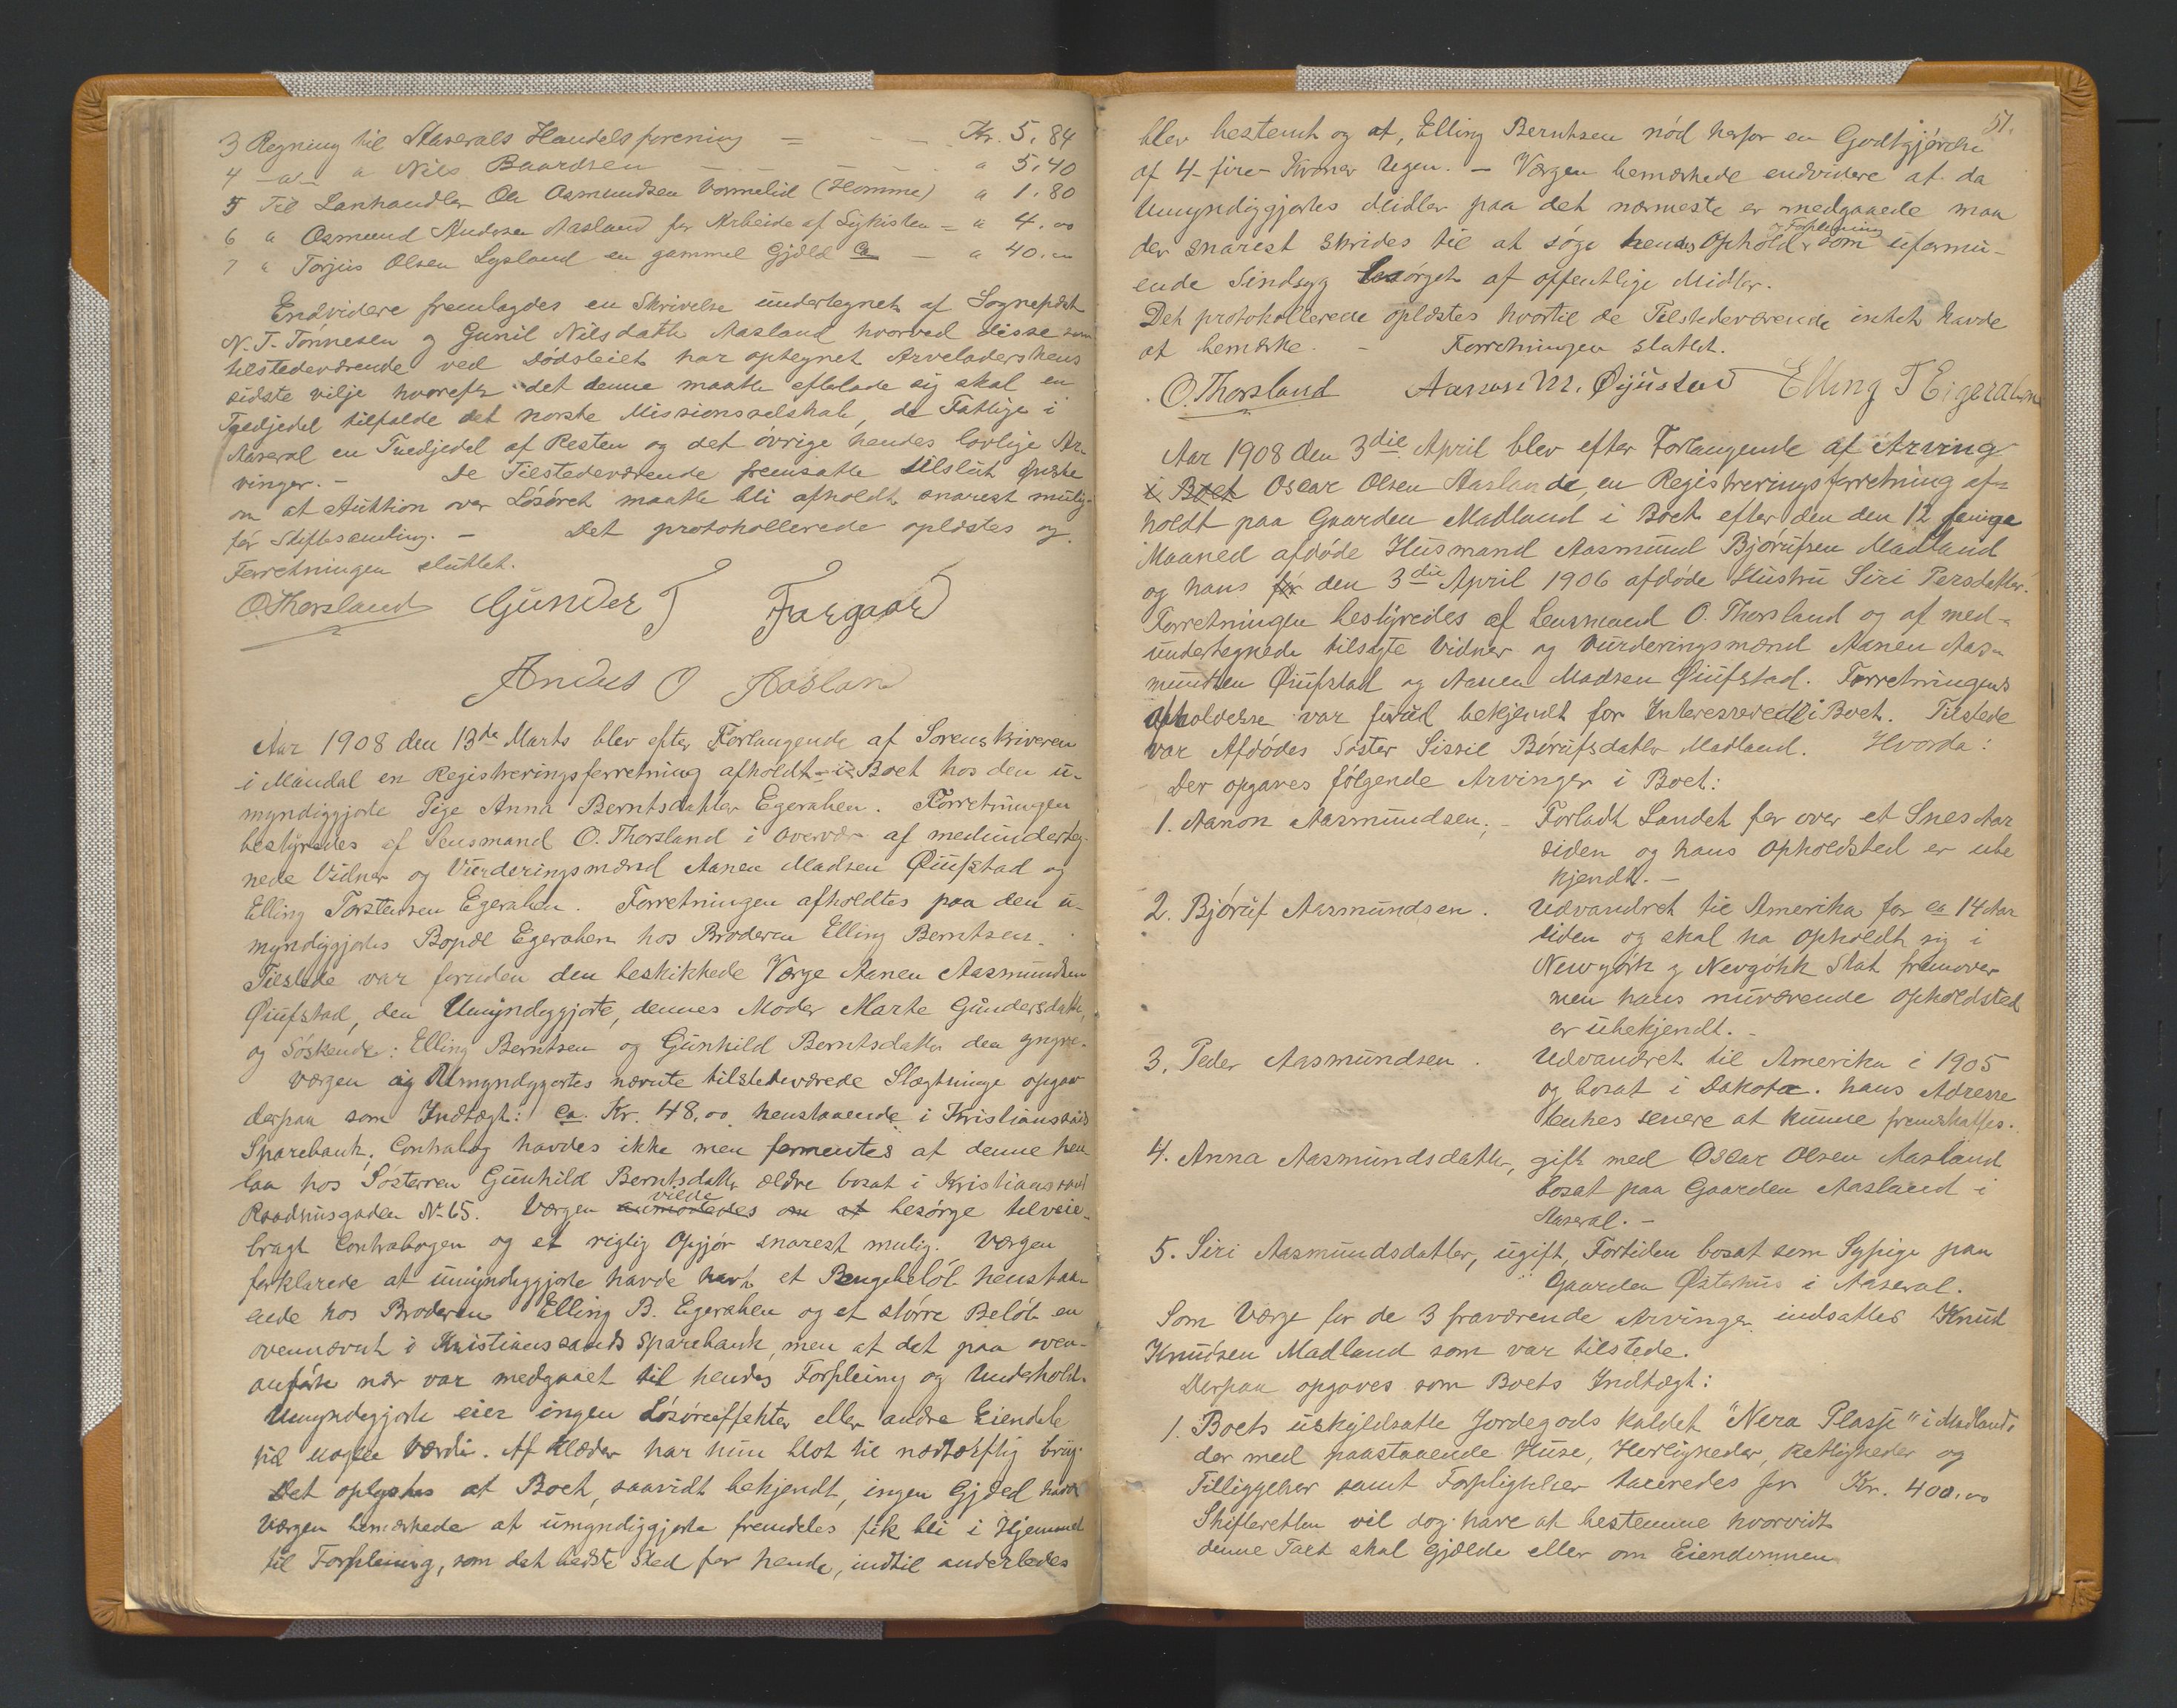 3 Regning til Aaserals Handelsforening = - Kr. 5.84
4 -"- " Nils Baardsen - - - " 5.40
5 Til Lanhandler Ole Osmundsen Vormelid (Homme) " 1.80
6 " Osmund Andersen Aasland for Arbeide af Ligkisten = " 4.00
7 " Torjus Olsen Lysland en gammel Gjæld Ca - " 40.00
Endvidere fremlagdes en Skrivelse undertegnet af Sogneprest
N. T. Tønnesen og Gunil Nilsdatter Aasland hvorved disse som
tilstedeværende ved Dødsleiet har optegnet Arveladerskens
sidste vilje hvorefter det denne maatte efterlade sig skal en
Tredjedel tilfalde det norske Missionsselskab, de Fattige i
Aaseral en Tredjedel af Resten og det øvrige hendes lovlige Ar-
vinger. - De Tilstedeværende fremsatte tilslut Ønske
om at Auktion over Løsøret maatte bli afholdt snarest mulig
før Skiftesamling. - Det protokollerede oplæstes og
Forretningen sluttet.
O. Thorsland Gunder T Fargaar
Andus O Aaslan
Aar 1908 den 13de Marts blev efter Forlangende af Sorenskriveren
i Mandal en Registreringsforretning afholdt i Boet hos den u-
myndiggjorte Pige Anna Berntsdatter Egerahen. Forretningen
bestyredes af Lensmand O. Thorsland i Overvær af medunderteg-
nede Vidner og Vurderingsmænd Aanen Madsen Øiufstad og
Elling Torstensen Egerahen. Forretningen afholdtes paa den u-
myndiggjortes Bopæl Egerahen hos Broderen Elling Berntsen.
Tilstede var foruden den beskikkede Værge Aanen Aasmundsen
Øiufstad, den Umyndiggjorte, dennes Moder Marte Gundersdatter,
og Søskende: Elling Berntsen og Gunhild Berntsdatter den yngre.
Værgen og Umyndiggjortes nævnte tilstedeværede Slægtninge opgav
derpaa som Indtægt: ca. Kr. 48.00 henstaaende i Kristianssands
Sparebank. Contrabog havdes ikke men formentes at denne hen
laa hos Søsteren Gunhild Berntsdatter ældre bosat i Kristianssand
Raadhusgaden No 65. Værgen anmodedes om at vilde besørge tilveie-
bragt Contrabogen og et rigtig Opgjør snarest mulig. Værgen
forklarede at umyndiggjorte havde havt et Pengebeløb henstaa-
ende hos Broderen Elling B. Egerahen og et større Beløb en
ovennævnt i Kristianssands Sparebank, men at det paa oven-
anførte nær var medgaaet til hendes Forpleining og Underhold.
Umyndiggjorte eier ingen Løsøreeffekter eller andre Eiendele
til nogen Værdi. Af Klæder har hun blot til nødtørftig brug.
Det oplystes at Boet, saavidt bekjendt, ingen Gjæld havde
Værgen bemærkede at umyndiggjorte fremdeles fik bli i Hjemmet
til Forpleining, som det bedste Sted for hende, indtil anderledes
51.
blev bestemt og at, Elling Berntsen nød herfor en Godtgjørelse
af 4-fire-Kroner Ugen. - Værgen bemærkede endvidere at da
Umyndiggjortes Midler paa det nærmeste er medgaaede maa
der snarest skrides til at søge hendes Ophold og Forpleining som uformu-
ende Sindsyg besørget af offentlige Midler.
Det protokollerede oplæstes hvortil de Tilstedeværende intet havde
at bemærke. - Forretningen sluttet.
O. Thorsland Aanon M. Øyustad Elling T Eigerahen
Aar 1908 den 3die April blev efter Forlangende af Arving
i Boet Oscar Olsen Aaslande, en Registreringsforretning af-
holdt paa Gaarden Madland i Boet efter den den 12 forrige
Maaned afdøde Husmand Aasmund Bjørufsen Madland
og hans før den 3die April 1906 afdøde Hustru Siri Persdatter.
Forretningen bestyredes af Lensmand O. Thorsland og af med-
undertegnede tilsagte Vidner og Vurderingsmænd Aanen Aas-
mundsen Øiufstad og Aanen Madsen Øiufstad. Forretningens
Afholdelse var forud bekjendt for Interesserede i Boet. Tilstede
var Afdødes Søster Sissil Børufsdatter Madland. Hvorda:
Der opgaves følgende Arvinger i Boet:
1. Aanon Aasmundsen; - Forladt Landet for over et Snes Aar
siden og hans Opholdsted er ube
kjendt. -
2. Bjøruf Aasmundsen. Udvandret til Amerika for ca 14 Aar
siden og skal ha opholdt sig i
Newyork og Nevyohk Stat fremover
men hans nuværende Opholdsted
er ubekjendt. -
3. Peder Aasmundsen. Udvandret til Amerika i 1905
og bosat i Dakota. hans Adresse
tænkes senere at kunne fremskaffes.
4. Anna Aasmundsdatter, gift med Oscar Olsen Aasland
bosat paa Gaarden Aasland i
Aaseral. -
5. Siri Aasmundsdatter, ugift, Fortiden bosat som Sypige paa
Gaarden Østerhus i Aaseral.
Som Værge for de 3 fraværende Arvinger indsattes Knut
Knudsen Madland som var tilstede.
Derpaa opgaves som Boets Indtægt:
1. Boets uskyldsatte Jordegods kaldet "Nera Plasse" i Madland,
der med paastaaende Huse, Herligheder, Rettigheder og
Tilliggelser samt Forpligtelser taxeredes for Kr. 400.00
Skifteretten vil dog have at bestemme hvorvidt
denne Taxt skal gjælde eller om Eiendommen